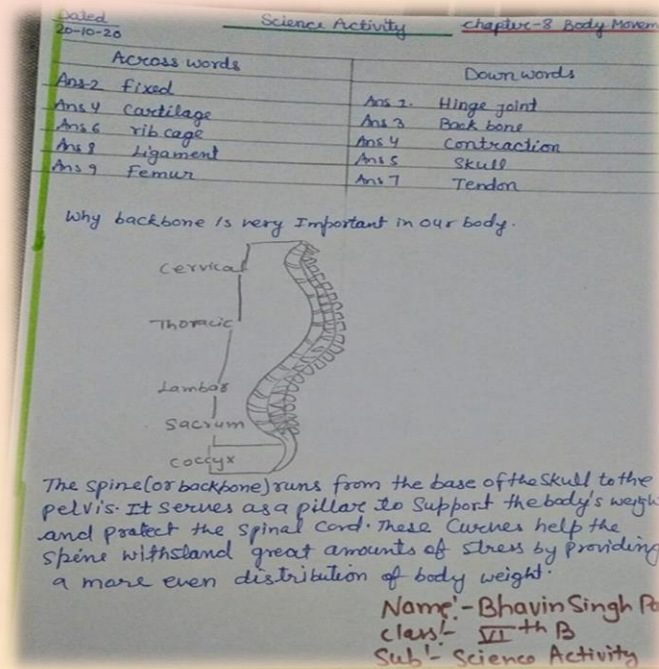 Dated
20-10-20
Science Activity
Chapter-8 Body Movem
Across words
Ans-2 Fixed
Ans 4 Cartilage
Ans 6 rib cage
Ans 8 Ligament
Ans 9 Femur
Down words
Ans 1. Hinge joint
Ans 3 Back bone
Ans 4 Contraction
Ans 5 Skull
Ans 7 Tendon
Why backbone is very Important in our body.
Cervical
Thoracic
Lambar
Sacrum
Coccyx
The spine(or backbone) runs from the base of the skull to the
pelvis. It serves as a pillar to Support the body's weigh
and protect the spinal cord. These Curves help the
spine withstand great amounts of stress by providing
a more even distribution of body weight.
Name:- Bhavin Singh Pa
class:- VIth B
Sub:- Science Activity